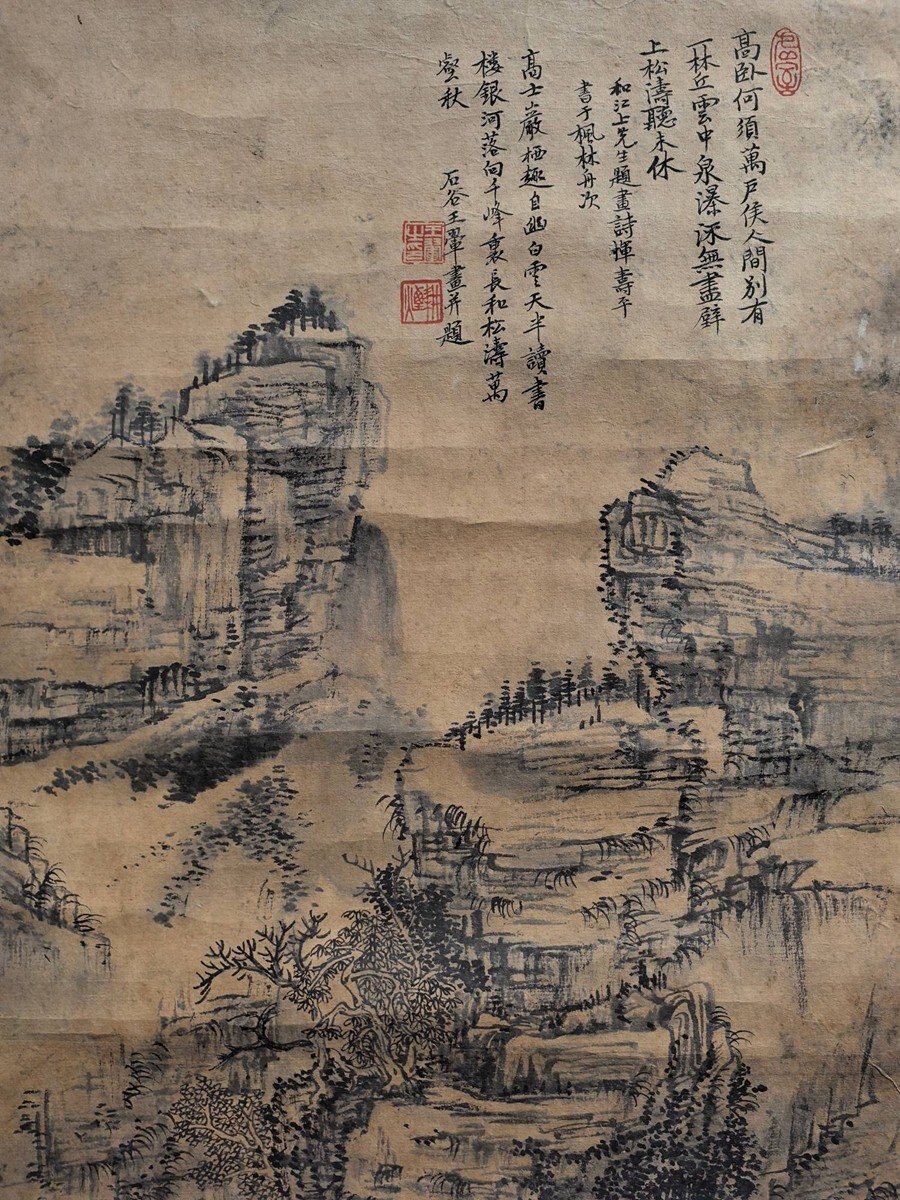 高臥何須萬戶侯人間別有
一林丘雲中泉瀑深無盡壁
上松濤聽未休
和江上先生題畫詩惲壽平
書于楓林舟次
高士巖栖趣自幽白雲天半讀書
楼銀河落向千峰裏長和松濤萬
壑秋
石谷王翬畫并題